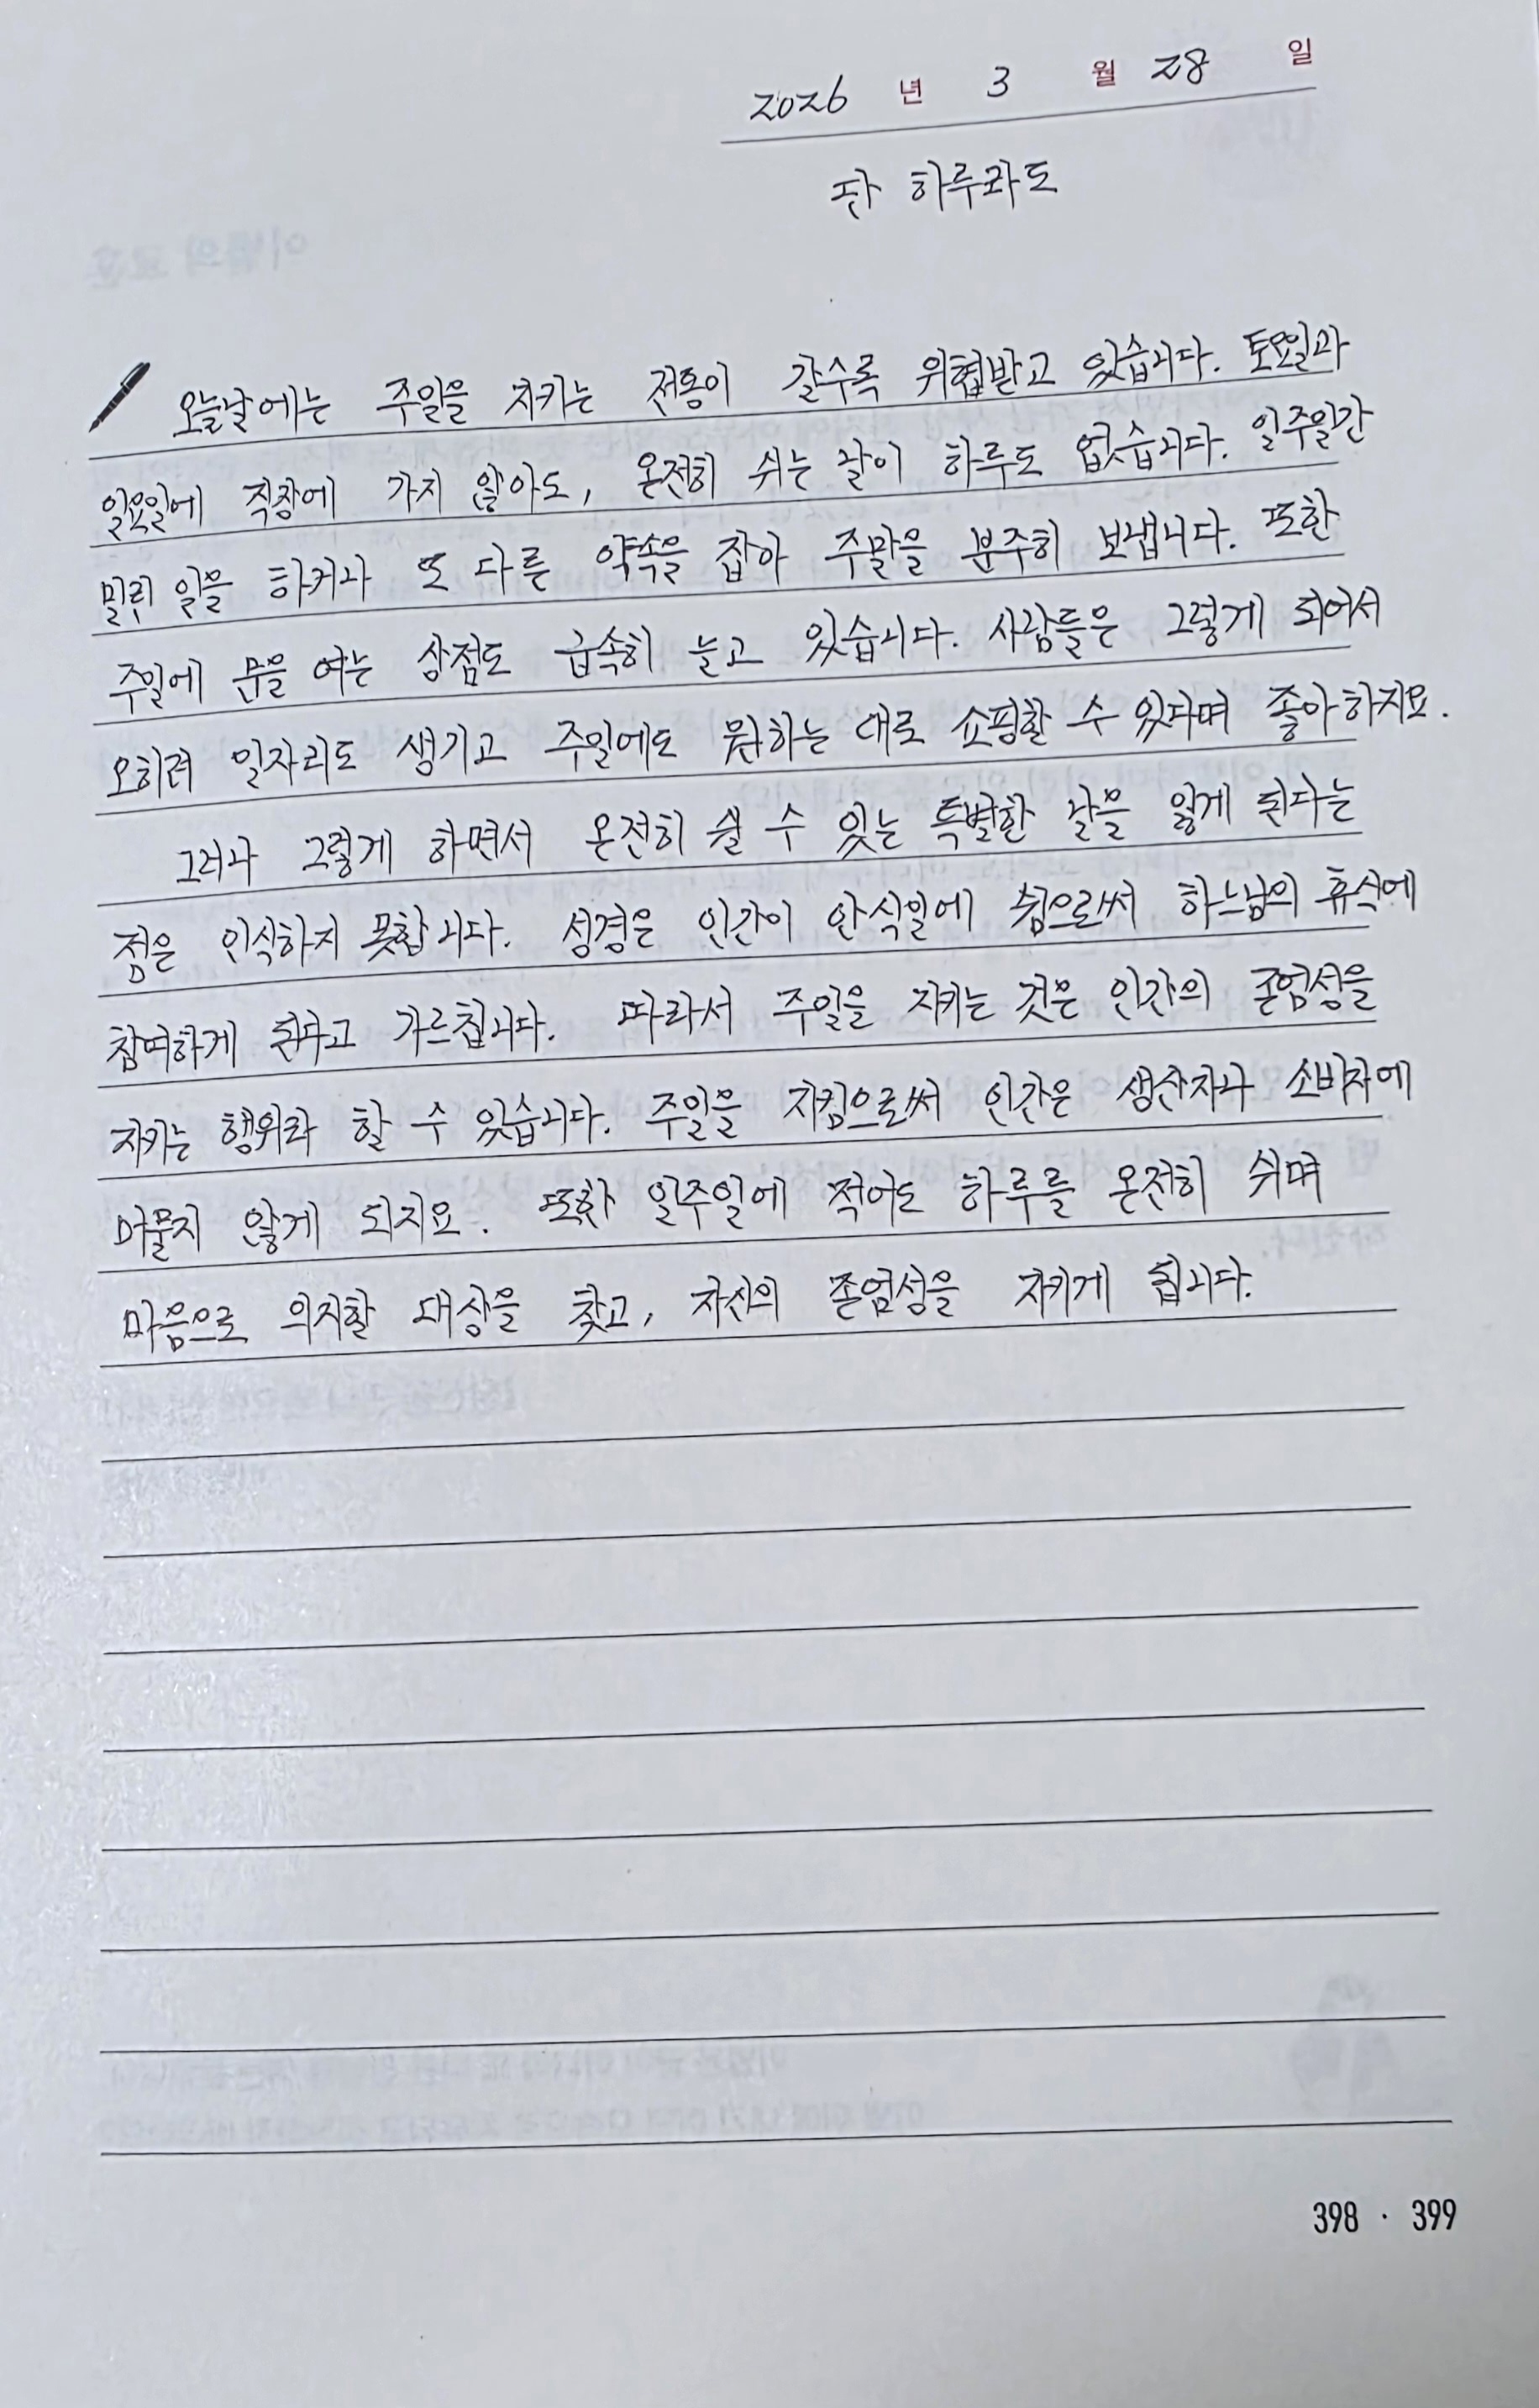 2026 년 3 월 28 일
단 하루라도
오늘날에는 주일을 지키는 전통이 갈수록 위협받고 있습니다. 토요일과
일요일에 직장에 가지 않아도, 온전히 쉬는 날이 하루도 없습니다. 일주일간
밀린 일을 하거나 또 다른 약속을 잡아 주말을 분주히 보냅니다. 또한
주일에 문을 여는 상점도 급속히 늘고 있습니다. 사람들은 그렇게 되어서
오히려 일자리도 생기고 주일에도 원하는 대로 쇼핑할 수 있다며 좋아하지요.
그러나 그렇게 하면서 온전히 쉴 수 있는 특별한 날을 잃게 된다는
점은 인식하지 못합니다. 성경은 인간이 안식일에 쉼으로써 하느님의 휴식에
참여하게 된다고 가르칩니다. 따라서 주일을 지키는 것은 인간의 존엄성을
지키는 행위라 할 수 있습니다. 주일을 지킴으로써 인간은 생산자나 소비자에
머물지 않게 되지요. 또한 일주일에 적어도 하루를 온전히 쉬며
마음으로 의지할 대상을 찾고, 자신의 존엄성을 지키게 됩니다.
398 · 399